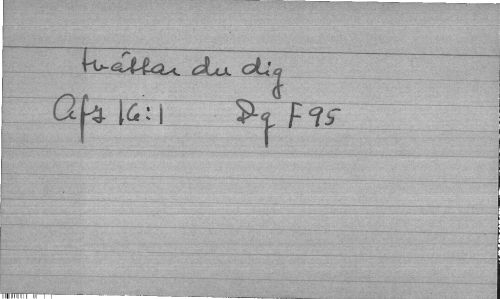 tvättar du dig
Afz 16:1 Dg F 95